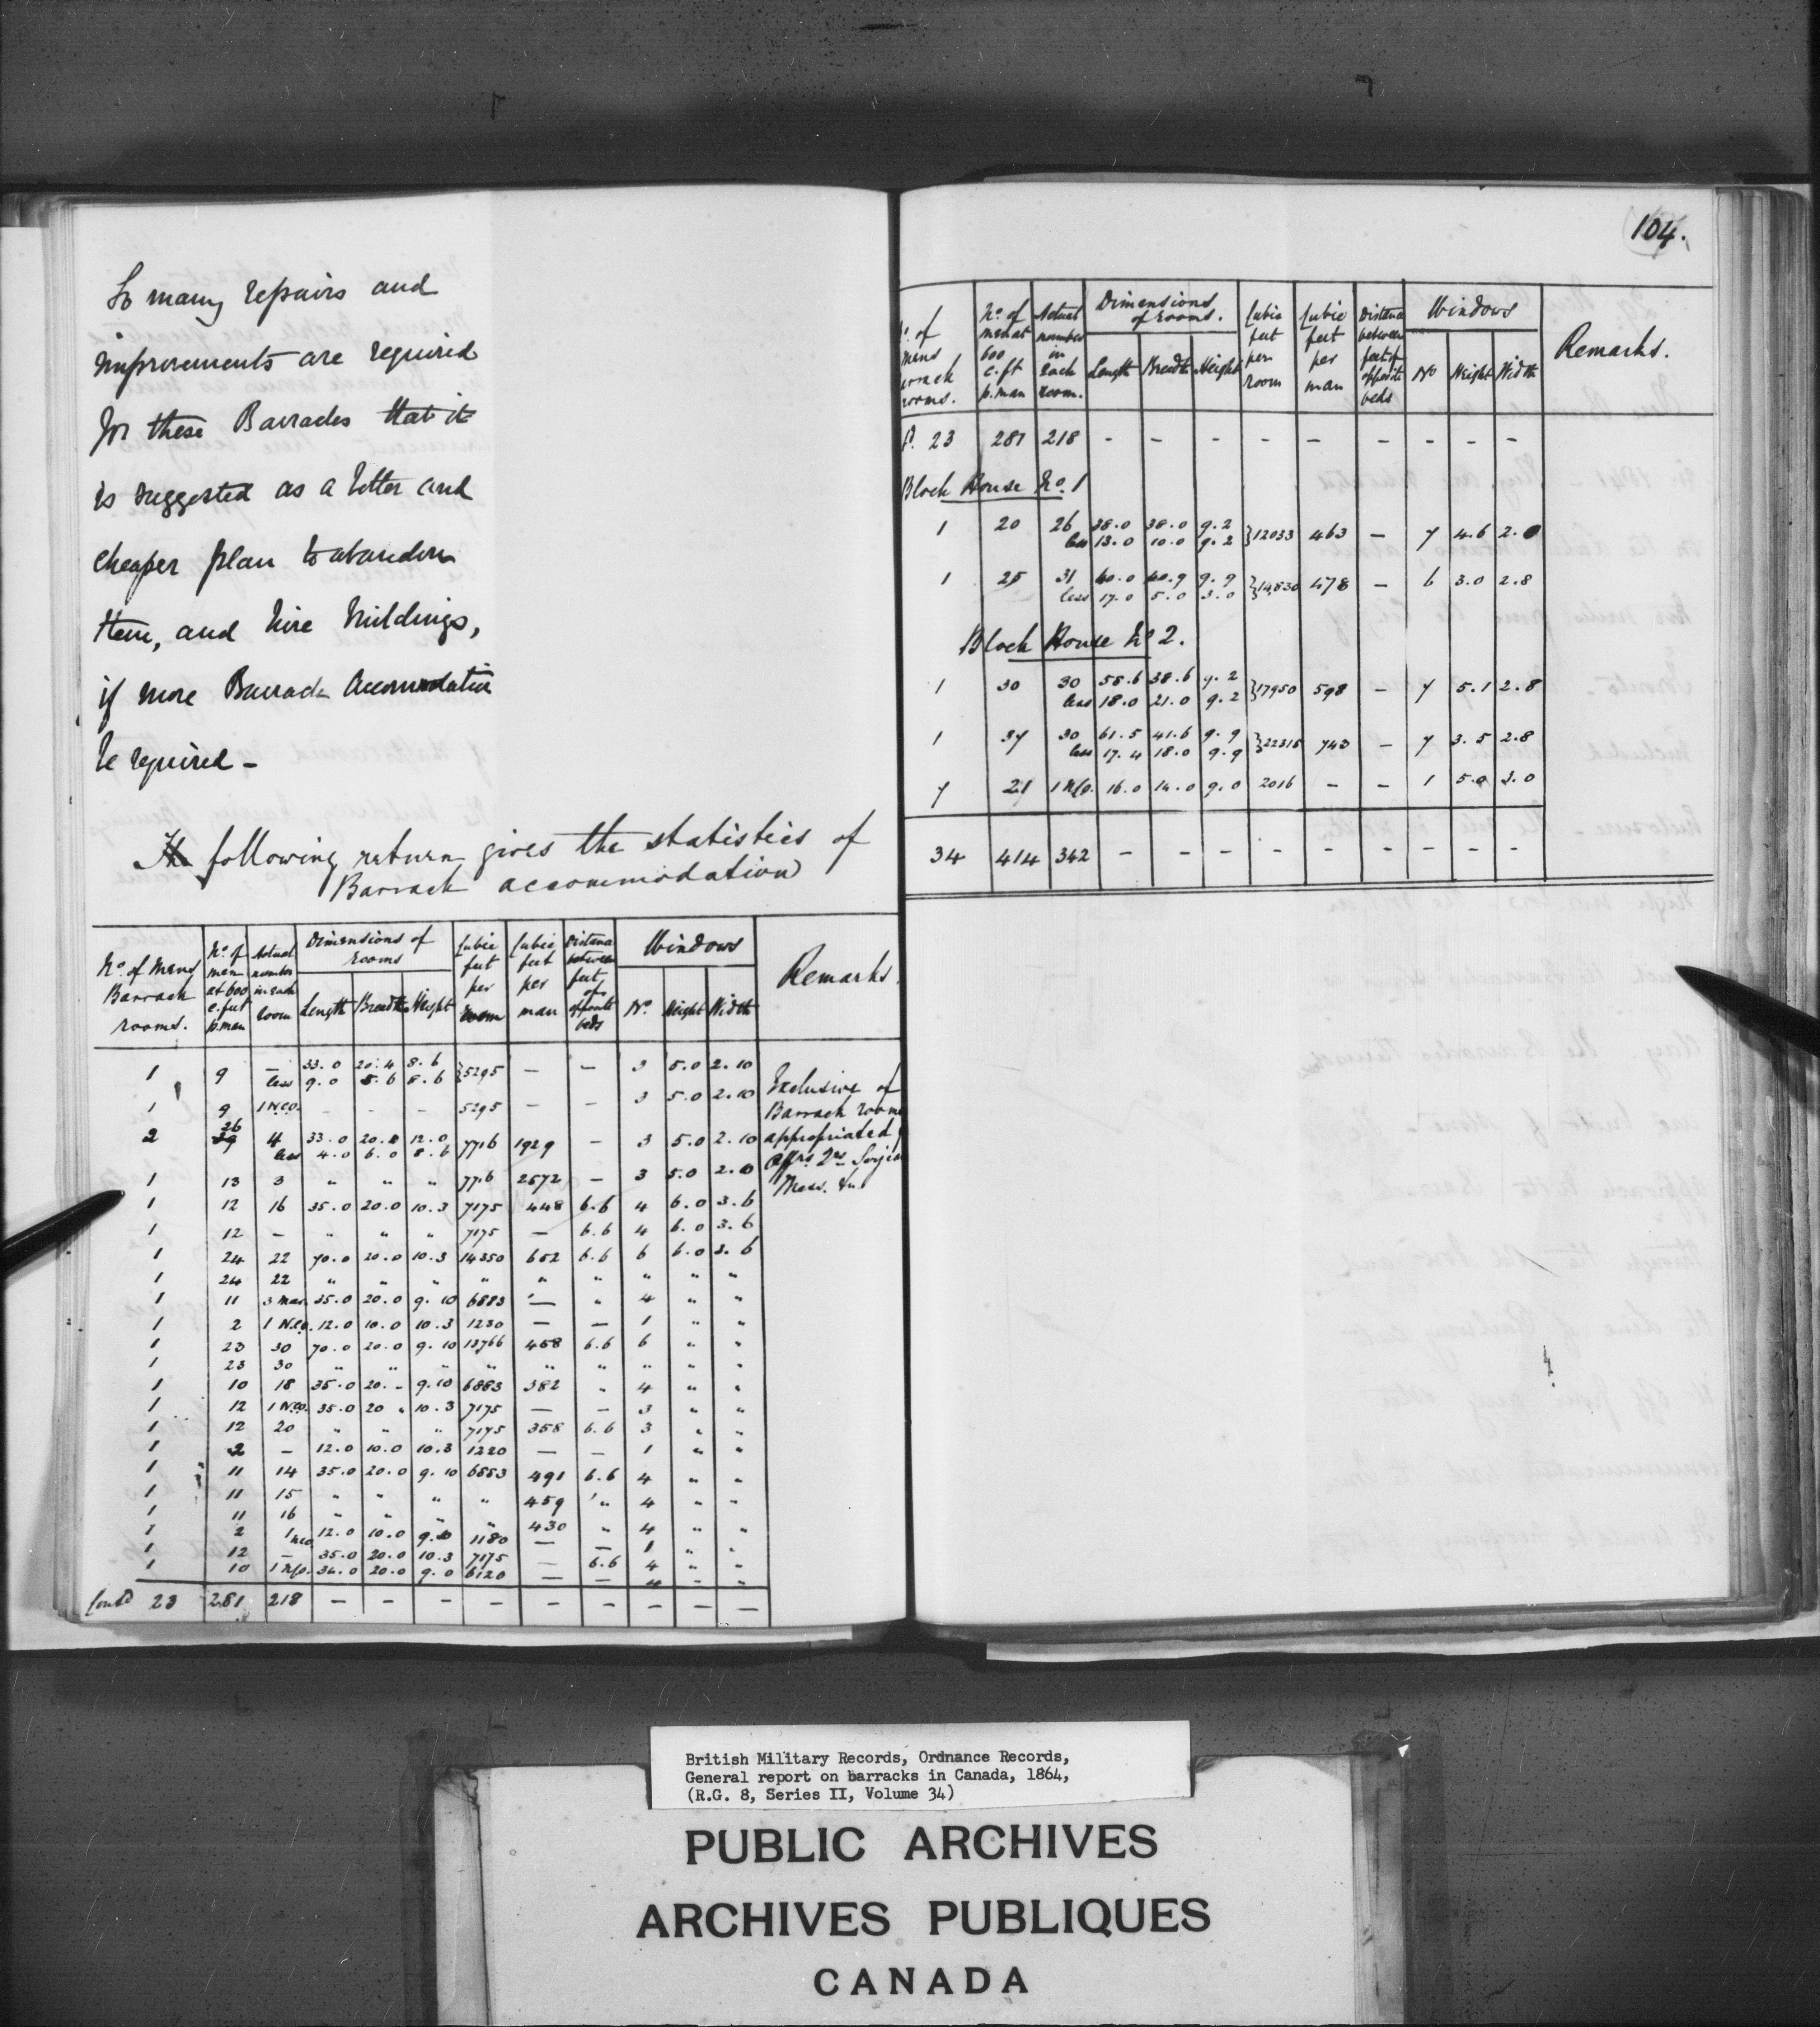 So many repairs and
improvements are required
for these Barracks that it
is suggested as a better and
cheaper plan to abandon
them, and hire buildings,
if more Barrack Accomodation
be required -
The following return gives the statistics of
Barrack accommodation
No. of Mens Barrack rooms. | No. of men at 600 c. feet p. man | Actual number in each room | Dimensions of rooms Length Breadth Height | Cubic feet per room | Cubic feet per man | Distance between feet of opposite beds | Windows No. Height Width | Remarks.
1 9 — 33.0 20.4 8.6 } 5295 — — 3 5.0 2.10
less 9.0 5.6 8.6
1 9 1 N.C.O. - - - 5295 — — 3 5.0 2.10
2 26 4 33.0 20.8 12.0 7716 1929 — 3 5.0 2.10
less 4.0 6.0 8.6
1 13 3 " " " 7716 2572 — 3 5.0 2.0
Exclusive of
Barrack rooms
appropriated
Mess. &c.
1 12 16 35.0 20.0 10.3 7175 448 6.6 4 6.0 3.6
1 12 — " " " 7175 — 6.6 4 6.0 3.6
1 24 22 70.0 20.0 10.3 14350 652 6.6 6 6.0 3.6
1 24 22 " " " " " " " " "
1 11 3 Mar. 35.0 20.0 9.10 6883 — " 4 " "
1 2 1 N.C.O. 12.0 10.0 10.3 1230 — — 1 " "
1 23 30 70.0 20.0 9.10 13766 458 6.6 6 " "
1 23 30 " " " " " " " " "
1 10 18 35.0 20.- 9.10 6883 382 " 4 " "
1 12 1 N.C.O. 35.0 20 " 10.3 7175 — — 3 " "
1 12 20 " " " 7175 358 6.6 3 " "
1 2 — 12.0 10.0 10.3 1220 — — 1 " "
1 11 14 35.0 20.0 9.10 6883 491 6.6 4 " "
1 11 15 " " " " 459 " 4 " "
1 11 16 " " " " 430 " 4 " "
1 2 1 NCO 12.0 10.0 9.10 1180 — — 1 " "
1 12 — 35.0 20.0 10.3 7175 — 6.6 4 " "
1 10 1 N.C.O. 34.0 20.0 9.0 6120 — — 4 - "
Contd 23 281 218 — — — — — — — — —
104.
No. of mens barrack rooms. | No. of men at 600 c. ft p. man | Actual number in each room. | Dimensions of rooms. Length Breadth Height | Cubic feet per room | Cubic feet per man | Distance between feet of opposite beds | Windows No Height Width | Remarks.
23 281 218 - - - - - - - - -
Block House No. 1
1 20 26 38.0 38.0 9.2 } 12033 463 — 7 4.6 2.0
less 13.0 10.0 9.2
1 25 31 40.0 40.9 9.9 } 14,830 478 — 6 3.0 2.8
less 17.0 5.0 3.0
Block House No 2.
1 30 30 58.6 38.6 9.2 } 17950 598 — 7 5.1 2.8
less 18.0 21.0 9.2
1 37 30 61.5 41.6 9.9 } 22315 743 — 7 3.5 2.8
less 17.4 18.0 9.9
7 21 1 N.C.O. 16.0 14.0 9.0 2016 — — 1 5.0 3.0
34 414 342 — - - - - - - - -
British Military Records, Ordnance Records,
General report on barracks in Canada, 1864,
(R.G. 8, Series II, Volume 34)
PUBLIC ARCHIVES
ARCHIVES PUBLIQUES
CANADA